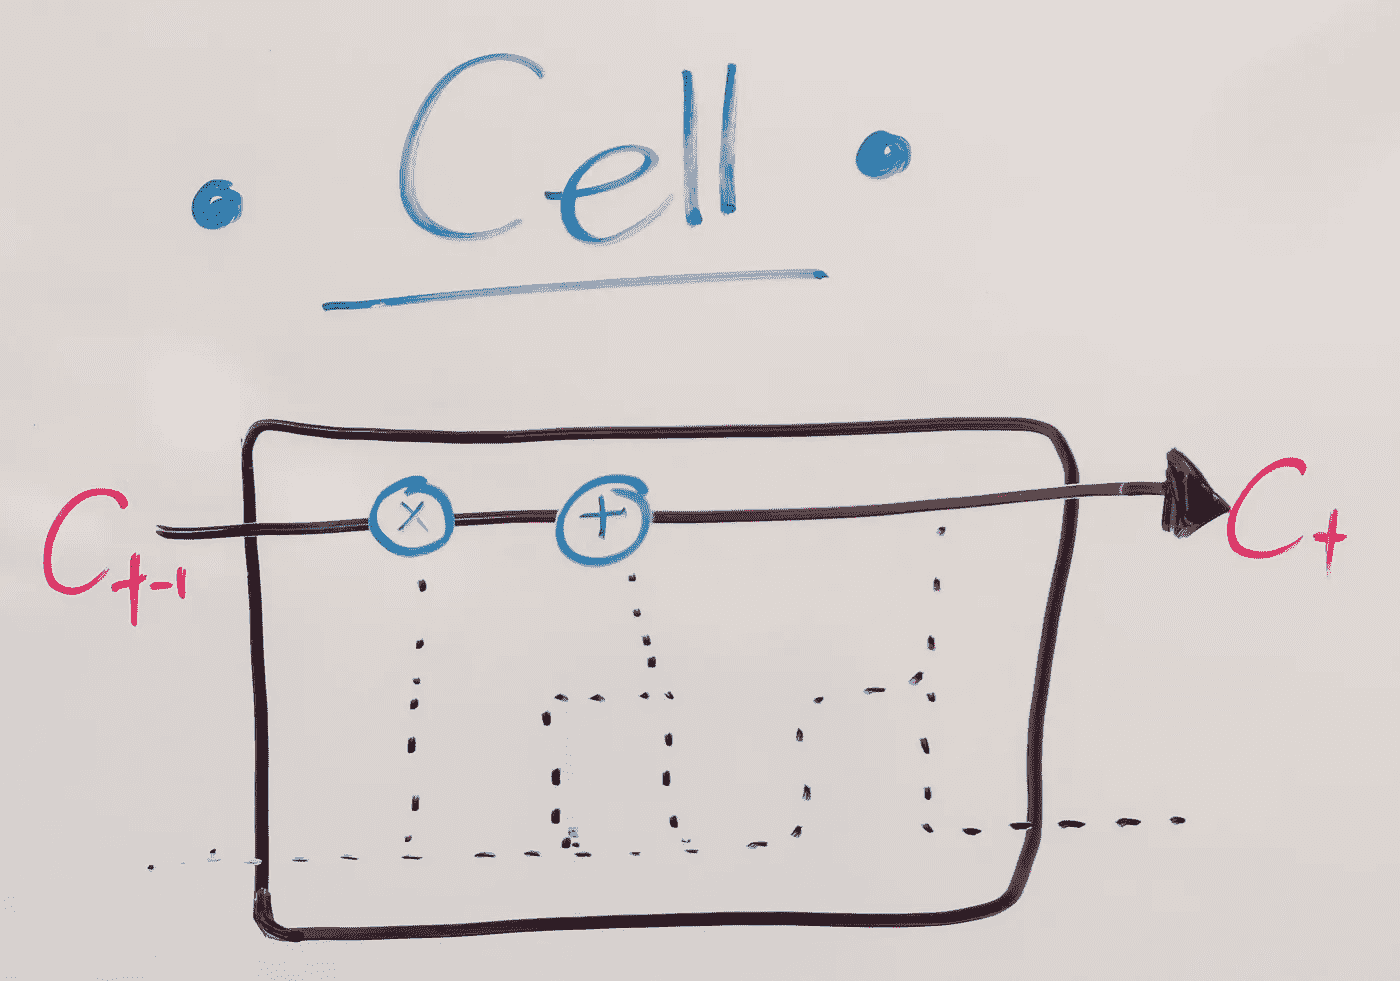 • Cell •
C_{t-1} × + C_t